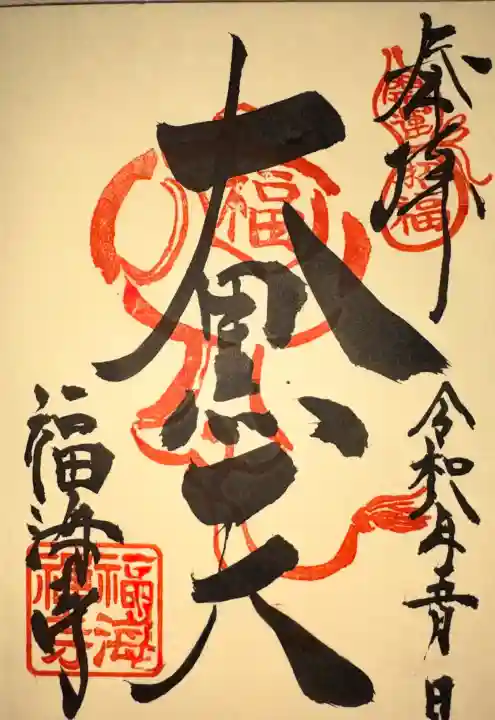 奉拝
開運
招福
令和八年五月 日
大黒天
福
福海寺
福海
禅寺